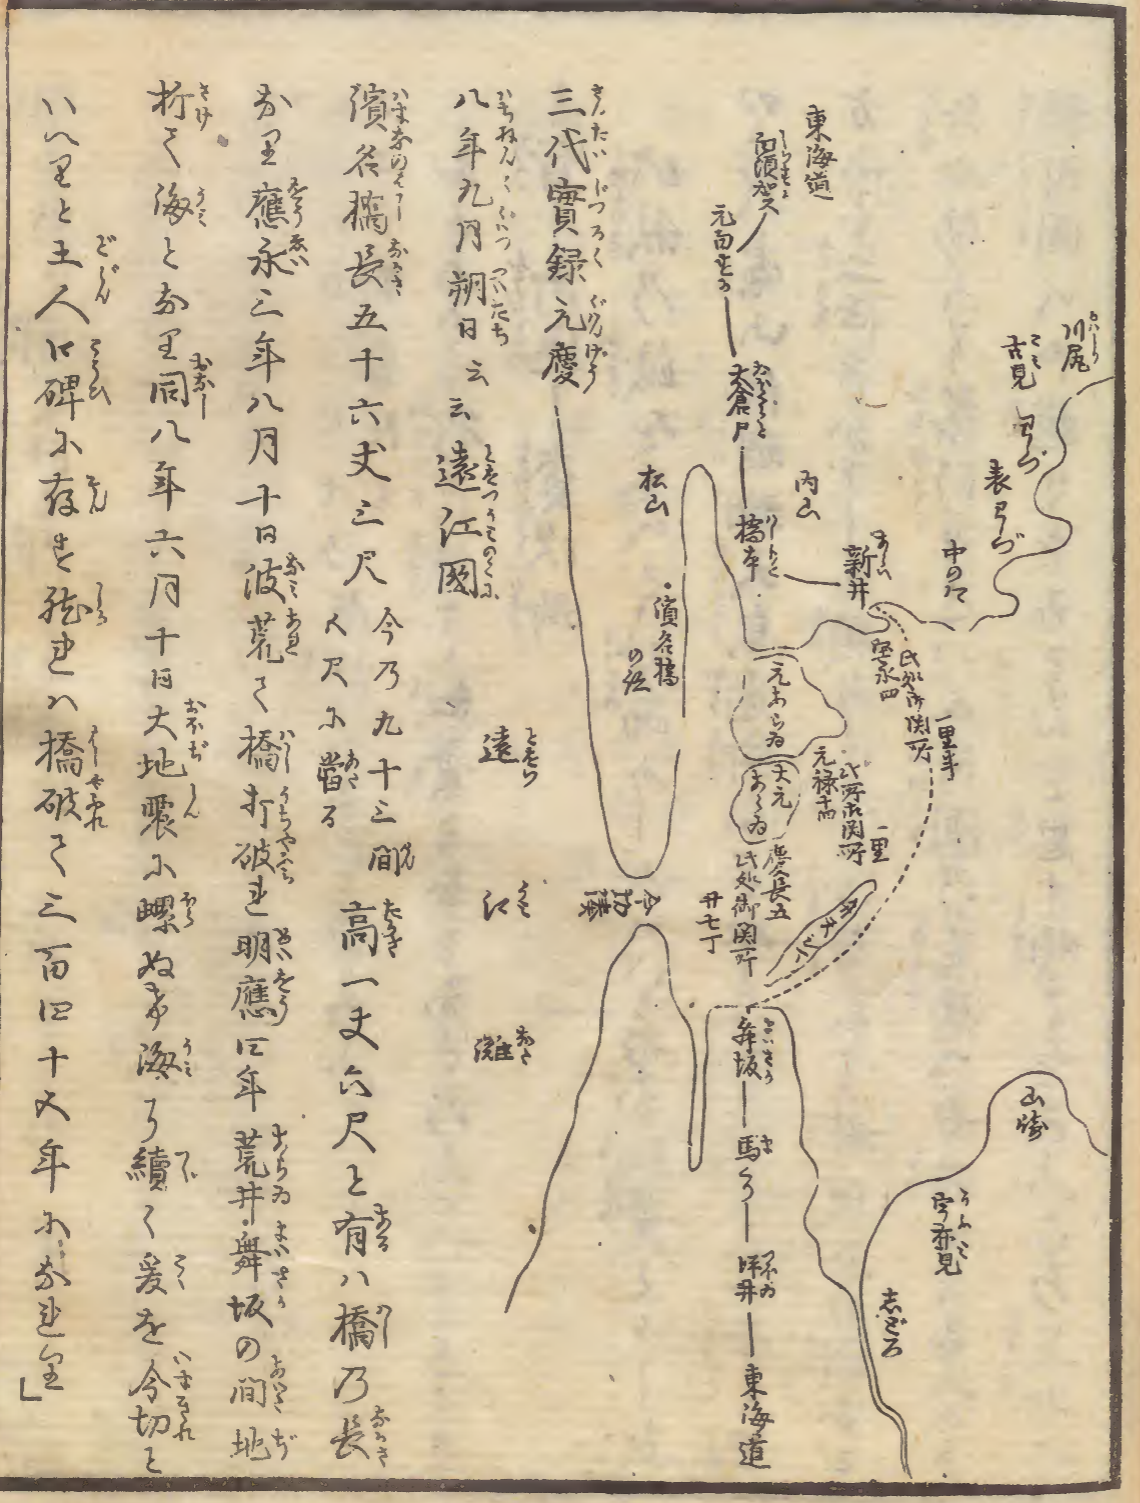 東海道
白須賀
元白すか
大倉戸
橋本
新井
内山
松山
濱名橋
の跡
川尻
古見
表わし づ
中のは
元あらゐ
大元
あらゐ
宝永四
此処御関所
一里半
元禄十四
此所御関所
一里
慶長五
此処御関所
廿七丁
今切
舞坂
馬郡
坪井
東海道
山崎
宇布見
志どろ
遠
江
灘
三代實録元慶
八年九月朔日云云遠江國
濱名橋長五十六丈三尺今乃九十三間
八尺に當る高一丈六尺と有ハ橋乃長
なり應永三年八月十日波荒て橋打破れ明應四年荒井舞坂の間地
折て海となり同八年六月十日大地震に螺ぬけ海に續く爰を今切と
いへりと土人口碑に存す然れハ橋破て三百四十六年になれり」